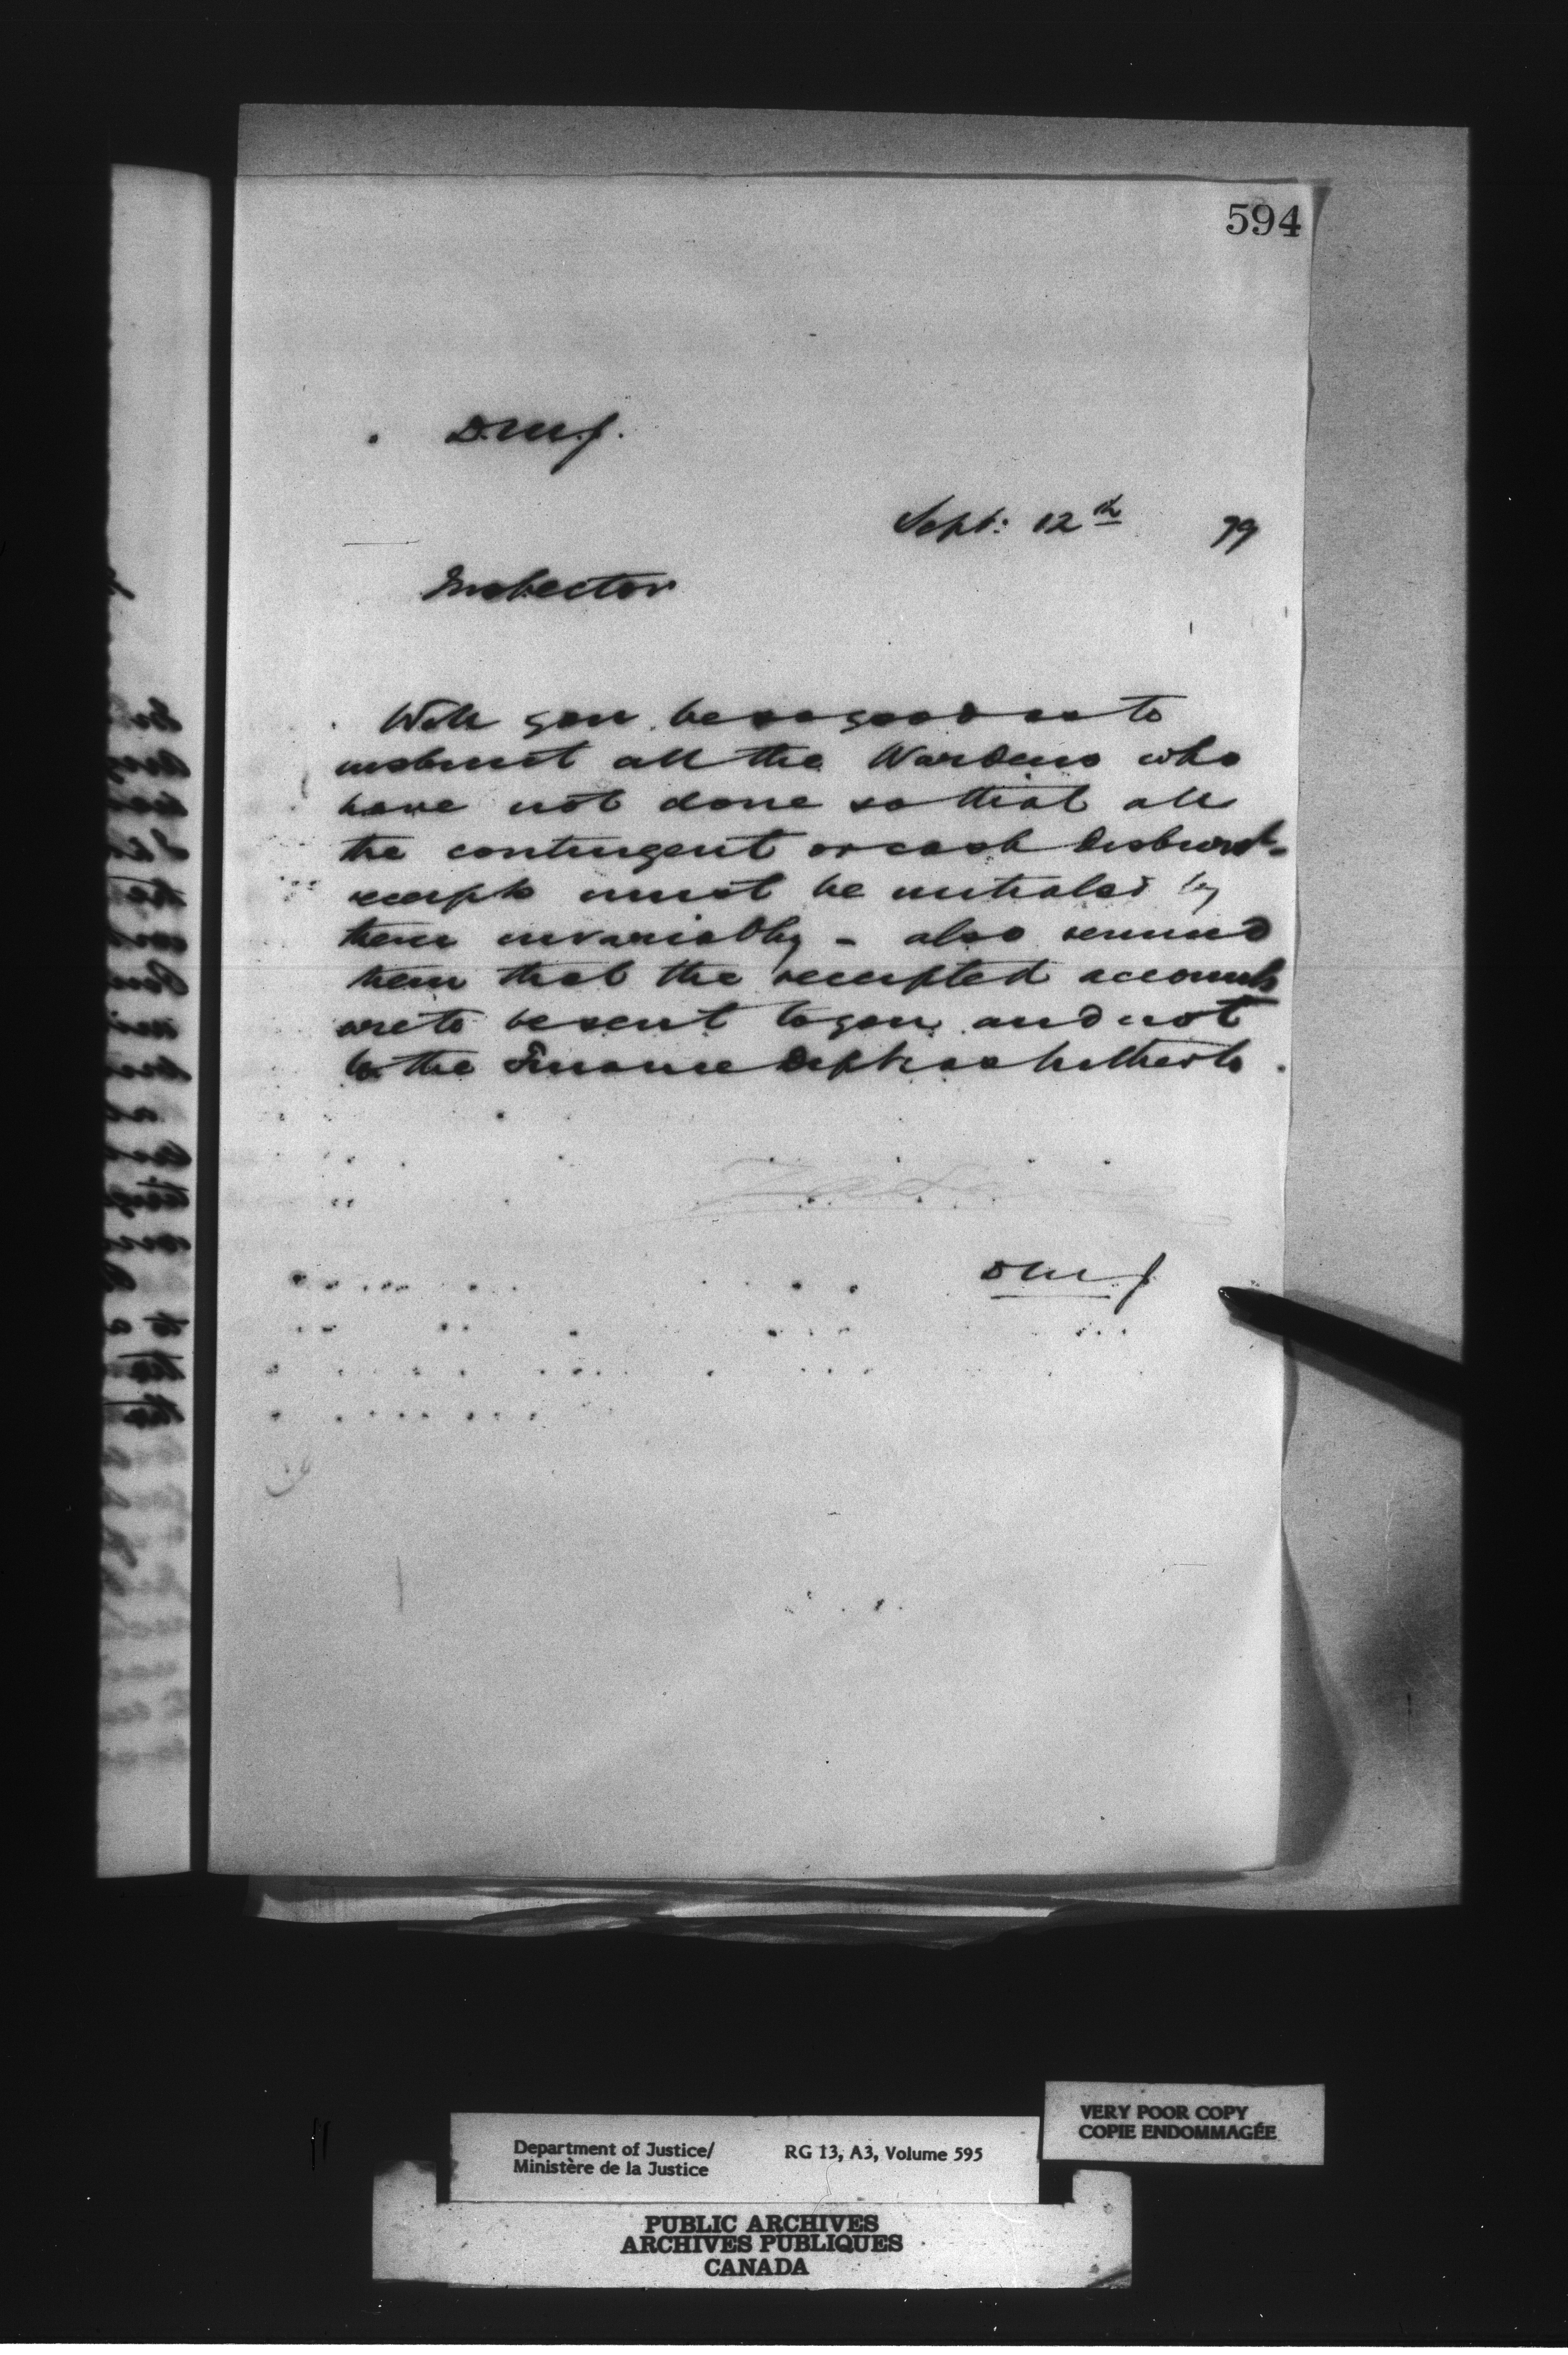 594
D.M.J.
Sept: 12th 79
Inspector
Will you be so good as to
instruct all the Wardens who
have not done so that all
the contingent or cash disburst-
receipts must be initialed by
them invariably - also remind
them that the receipted accounts
are to be sent to you and not
to the Finance Dept as hitherto.
DMJ
VERY POOR COPY
COPIE ENDOMMAGÉE
Department of Justice/ RG 13, A3, Volume 595
Ministère de la Justice
PUBLIC ARCHIVES
ARCHIVES PUBLIQUES
CANADA